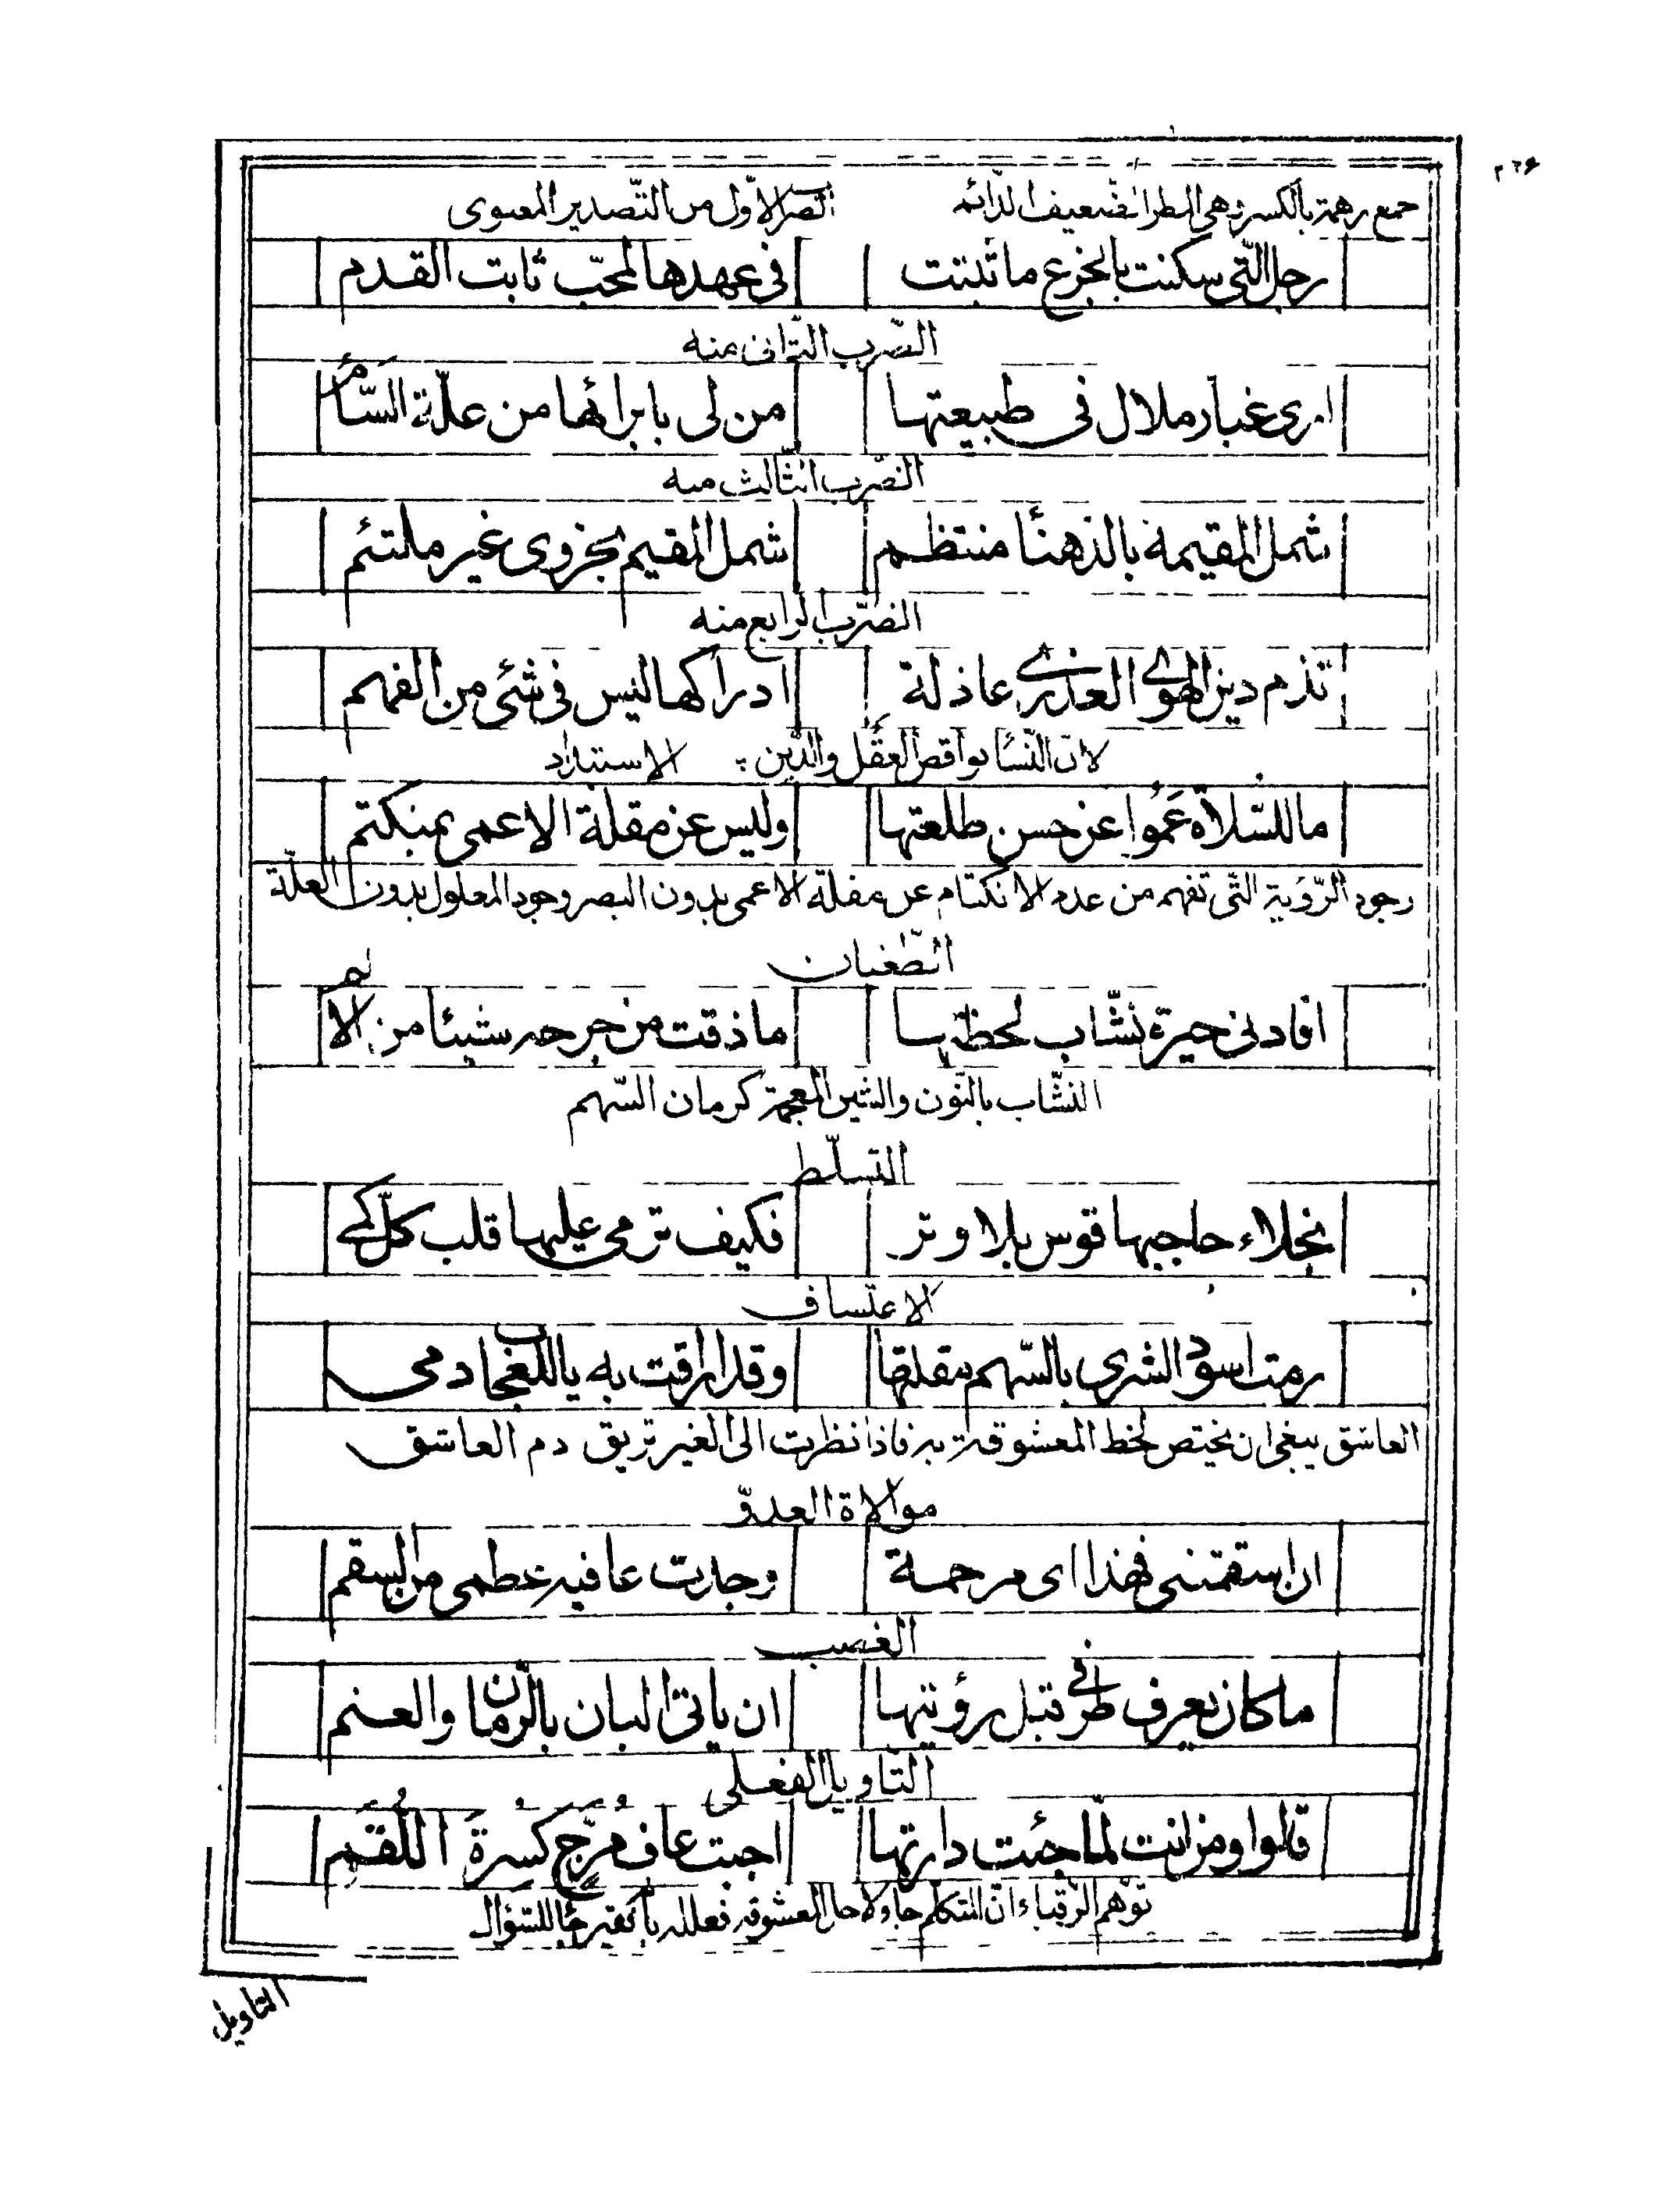 ٢٢٦
جمع رهمة بالكسر وهى المطر الضعيف الدّائم الضرب الاوّل من التّصدير المعنوى
رجل الّتى سكنت بالجزع ما ثبتت فى عهدها لمحبّ ثابت القدم
الضّرب الثّانى منه
ارى غبار ملال فى طبيعتها من لى بابرائها من علّة السّأم
الضّرب الثّالث منه
شمل المقيمة بالدهنأ منتظم شمل المقيم بحزوى غير ملتئم
الضّرب الرابع منه
تذم دين الهوى العذرى عاذلة ادراكها ليس فى شئ من الفهم
لانّ النّسأ نواقص العقل والدّين الاستبداد
ما للسّلاة عَمُوا عن حسن طلعتها وليس عن مقلة الاعمى بمنكتم
وجود الرّؤية التّى تفهم من عدم الانكتام عن مقلة الاعمى بدون البصر وجود المعلول بدون العلّة
الطّغيان
افادنى حيرة نشّاب لحظة ما ذقت من جرحه شيئا من الالم
النشّاب بالنّون والشين المعجمة كرمان السّهم
التسلّط
نجلاء حاجبها قوس بلا وتر فكيف ترمى عليها قلب كلّ كمى
الاعتساف
رمت اسود الشرى بالسّهم مقلتها وقد اراقت به ياللعجاب دمى
العاشق يبغى ان يختص لحظ المعشوقة به فاذا نظرت الى الغير تريق دم العاشق
موالاة العدوّ
ان اسقمتنى فهذا اى مرحمة وجدت عافية عظمى من السقم
الغصب
ما كان يعرف طرفى قبل رؤيتها ان ياتى البان بالرّمان والعنم
التّاويل الفعلى
قالوا ومن انت لمّا جئت دارتها اجبت عاف مُرَجٍّ كسرةَ اللُّقَم
توّهم الرّقباء انّ المتكلم جاء لاجل المعشوقه فعلله بأنّه فقير جأ للسّؤال
التاويل